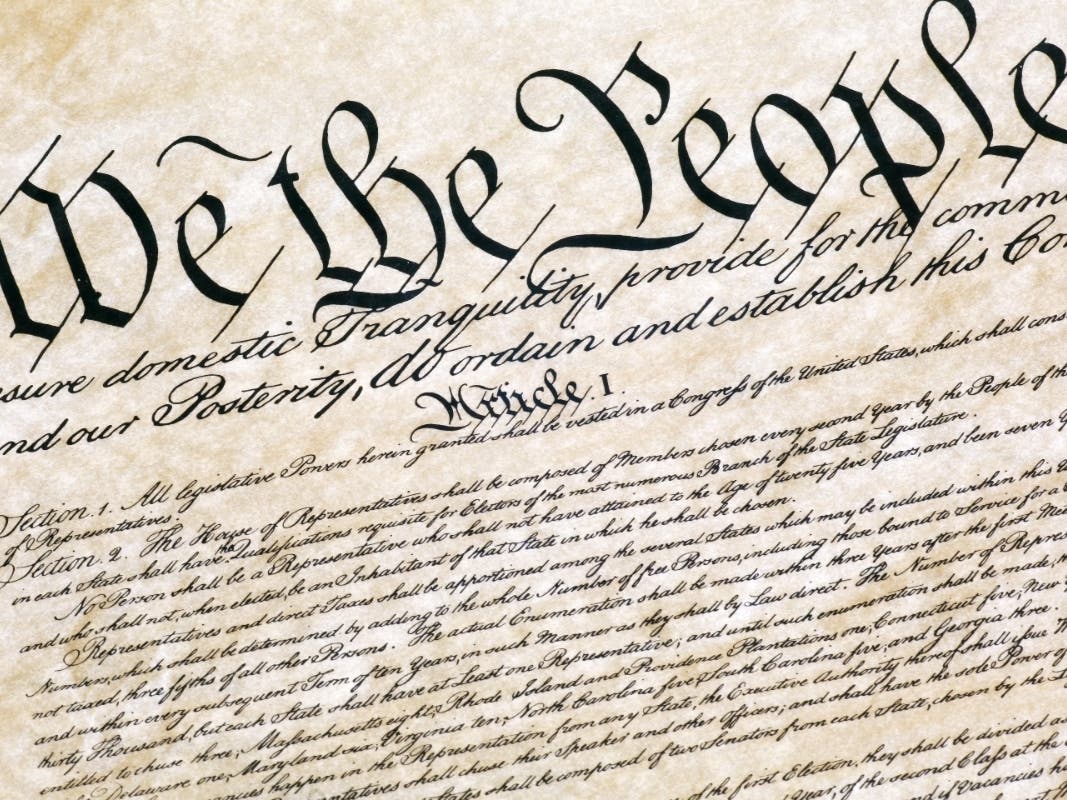 We the People
sure domestic Tranquility, provide for the comm
nd our Posterity, do ordain and establish this Co
Article. I.
Section. 1. All legislative Powers herein granted shall be vested in a Congress of the United States, which shall cons
of Representatives.
Section. 2. The House of Representatives shall be composed of Members chosen every second Year by the People of th
in each State shall have the Qualifications requisite for Electors of the most numerous Branch of the State Legislature.
No Person shall be a Representative who shall not have attained to the Age of twenty five Years, and been seven Y
and who shall not, when elected, be an Inhabitant of that State in which he shall be chosen.
Representatives and direct Taxes shall be apportioned among the several States which may be included within this U
Numbers, which shall be determined by adding to the whole Number of free Persons, including those bound to Service for a
not taxed, three fifths of all other Persons. The actual Enumeration shall be made within three Years after the first Mee
and within every subsequent Term of ten Years, in such Manner as they shall by Law direct. The Number of Repres
thirty Thousand, but each State shall have at Least one Representative; and until such enumeration shall be made, t
entitled to chuse three, Massachusetts eight, Rhode Island and Providence Plantations one, Connecticut five, New
Delaware one, Maryland six, Virginia ten, North Carolina five, South Carolina five, and Georgia three.
ancies happen in the Representation from any State, the Executive Authority thereof shall issue
ntatives shall chuse their Speaker and other Officers; and shall have the sole Power of
States shall be composed of two Senators from each State, chosen by the
of the first Election, they shall be divided as
Year, of the second Class at the
d if Vacancies